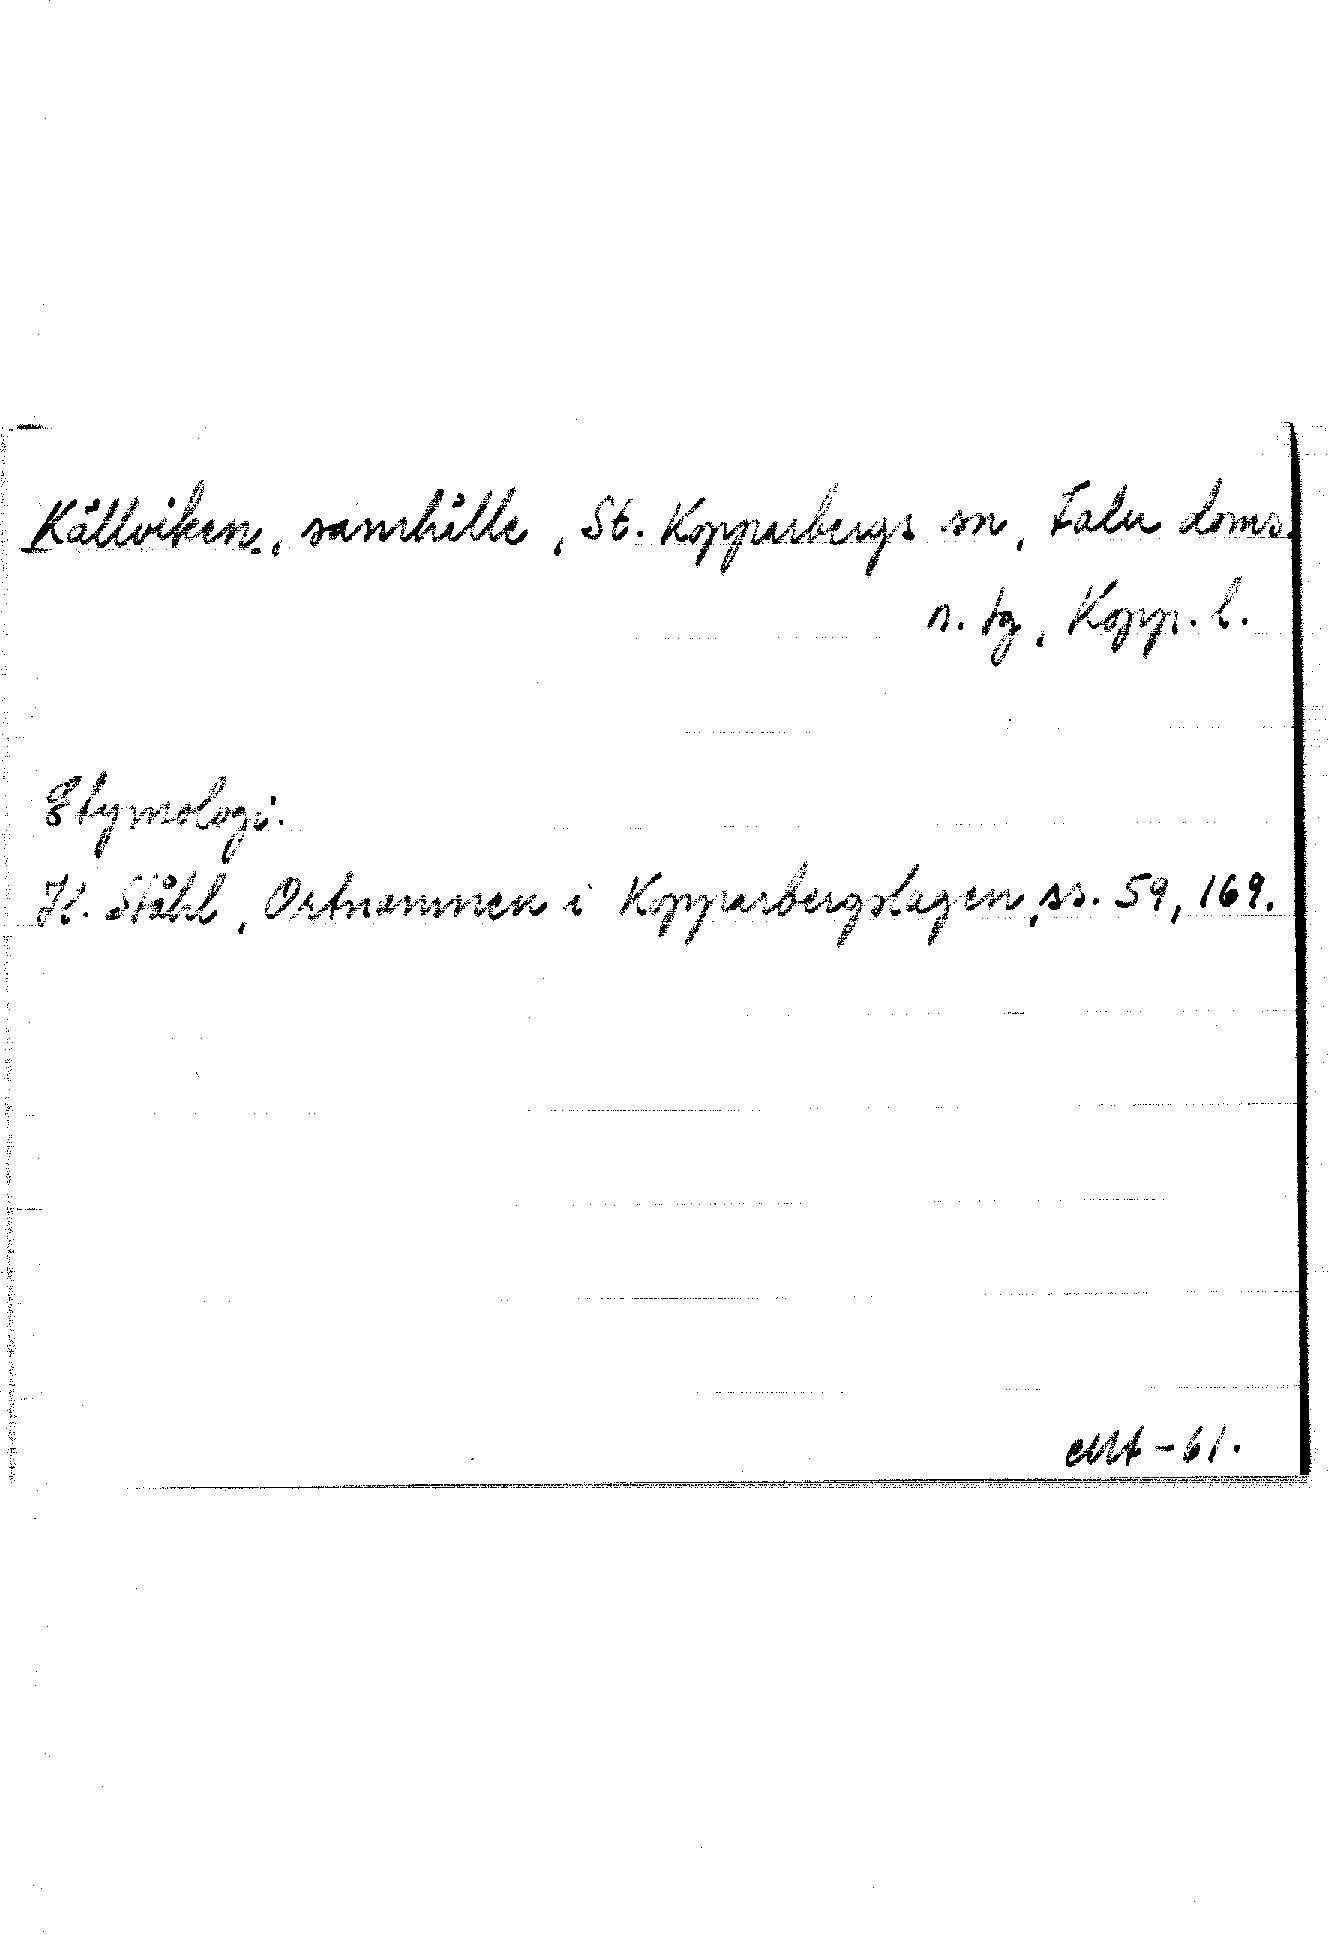 Källviken, samhälle, St. Kopparbergs sn, Falu doms.
n. tg, Kopp. l.
Etymologi.
H. Ståhl, Ortnamnen i Kopparbergslagen, ss. 59, 169.
-61.